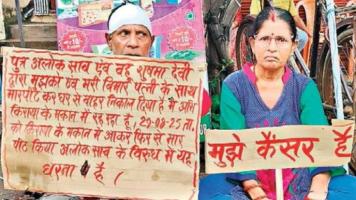 पुत्र अलोक साव एंव वहू सुषमा देवी
द्वारा मुझको एंव मेरी बिमार पत्नी के साथ
मारपीट कर घर से बाहर निकाल दिया है मैं अभि
किराया के मकान में रह रहा हूँ, 29-08-25 ता.
को किराया के मकान में आकर फिर से मार
पीट किया अलोक साव के विरुध में यह
धरना है।
मुझे कैंसर है